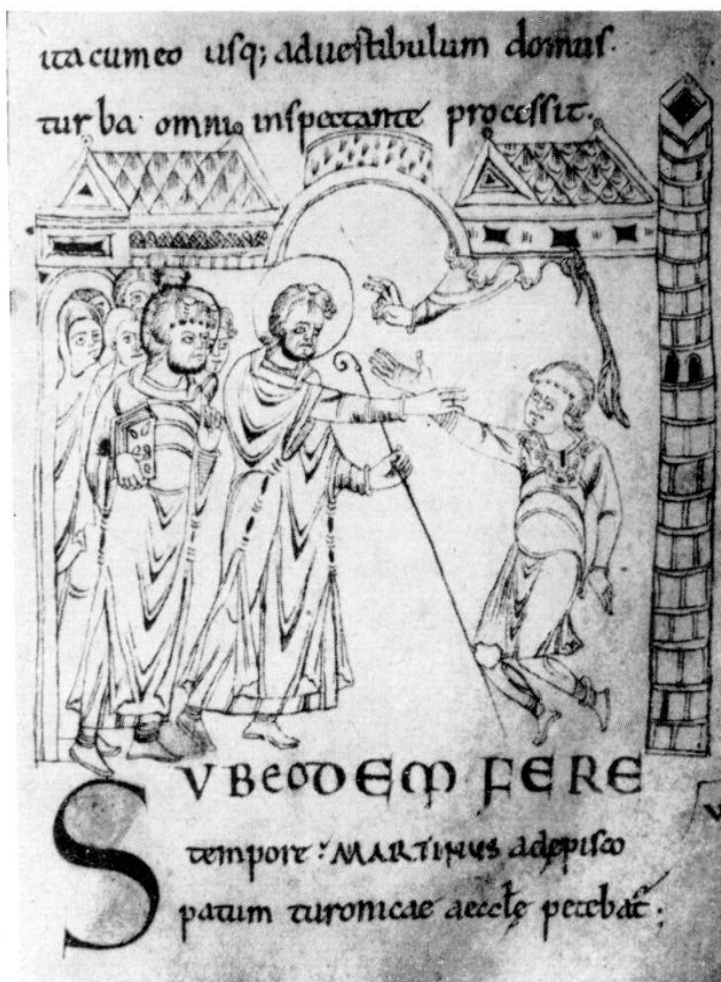 ita cum eo usq; ad uestibulum domus.
turba omni inspectante processit.
SUB EODEM FERE
tempore: MARTINUS ad episco
patum turonicae aeccłe petebat̃;